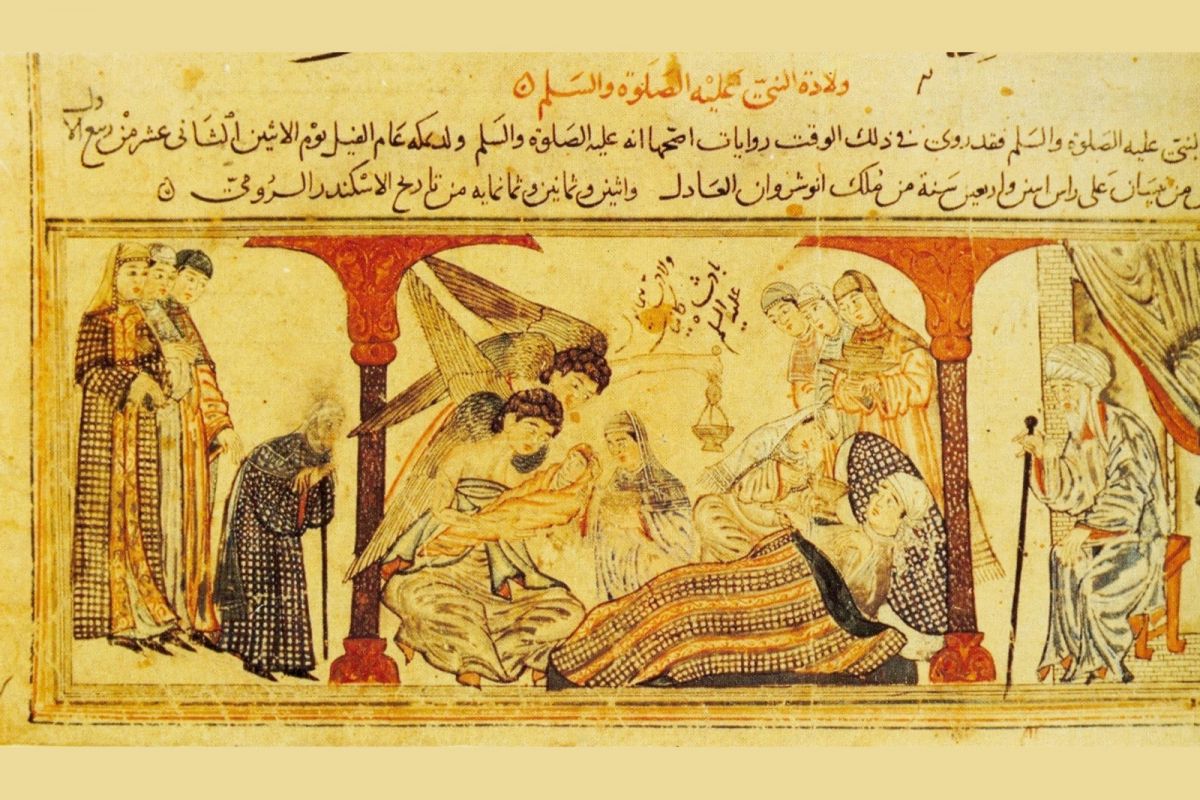 ولادة النبي عليه الصلوة والسلم
النبي عليه الصلوة والسلم فقد روي في ذلك الوقت روايات اصحها انه عليه الصلوة والسلم ولد بمكه عام الفيل يوم الاثنين الثاني عشر من ربيع الا
من نيسان على راس اثنين واربعين سنة من ملك انوشروان العادل واثنين وثمانين وثمانمايه من تاريخ الاسكندر الرومي
ولادت
عليه السلم